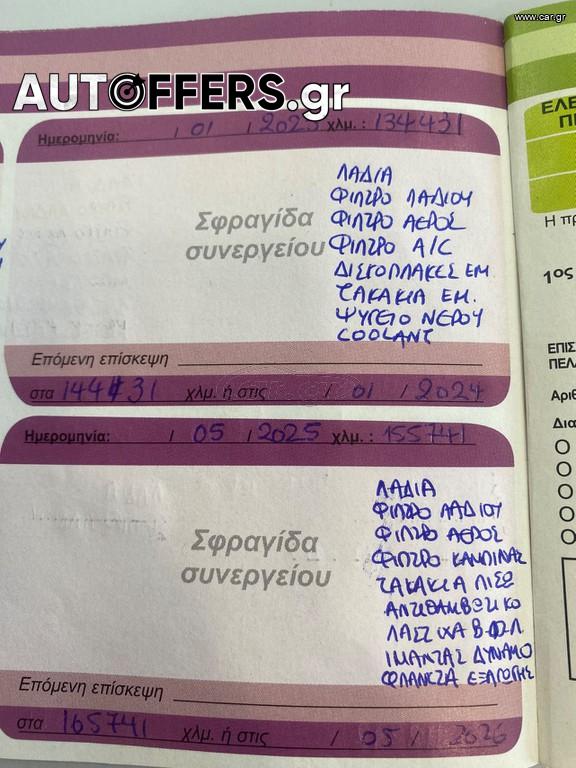 www.car.gr
AUTOFFERS.gr
Ημερομηνία: / 01 / 2023 χλμ.: 134431
ΛΑΔΙΑ
ΦΙΛΤΡΟ ΛΑΔΙΟΥ
ΦΙΛΤΡΟ ΑΕΡΟΣ
ΦΙΛΤΡΟ A/C
ΔΙΣΚΟΠΛΑΚΕΣ ΕΜ
ΤΑΚΑΚΙΑ ΕΜ.
ΨΥΓΕΙΟ ΝΕΡΟΥ
COOLANT
Σφραγίδα
συνεργείου
Επόμενη επίσκεψη
στα 144431 χλμ. ή στις / 01 / 2024
Ημερομηνία: / 05 / 2025 χλμ.: 155741
ΛΑΔΙΑ
ΦΙΛΤΡΟ ΛΑΔΙΟΥ
ΦΙΛΤΡΟ ΑΕΡΟΣ
ΦΙΛΤΡΟ ΚΑΜΠΙΝΑΣ
ΤΑΚΑΚΙΑ ΠΙΣΩ
ΑΝΤΙΘΑΜΒΩΤΙΚΟ
ΛΑΣΤΙΧΑ
ΙΜΑΝΤΑΣ ΔΥΝΑΜΟ
ΦΛΑΝΤΖΑ ΕΞΑΓΩΓΗΣ
Σφραγίδα
συνεργείου
Επόμενη επίσκεψη
στα 165741 χλμ. ή στις / 05 / 2026
ΕΛΕ
Η πρ
1ος
ΕΠΙΣ
ΠΕΛΑ
Αριθ
Δια